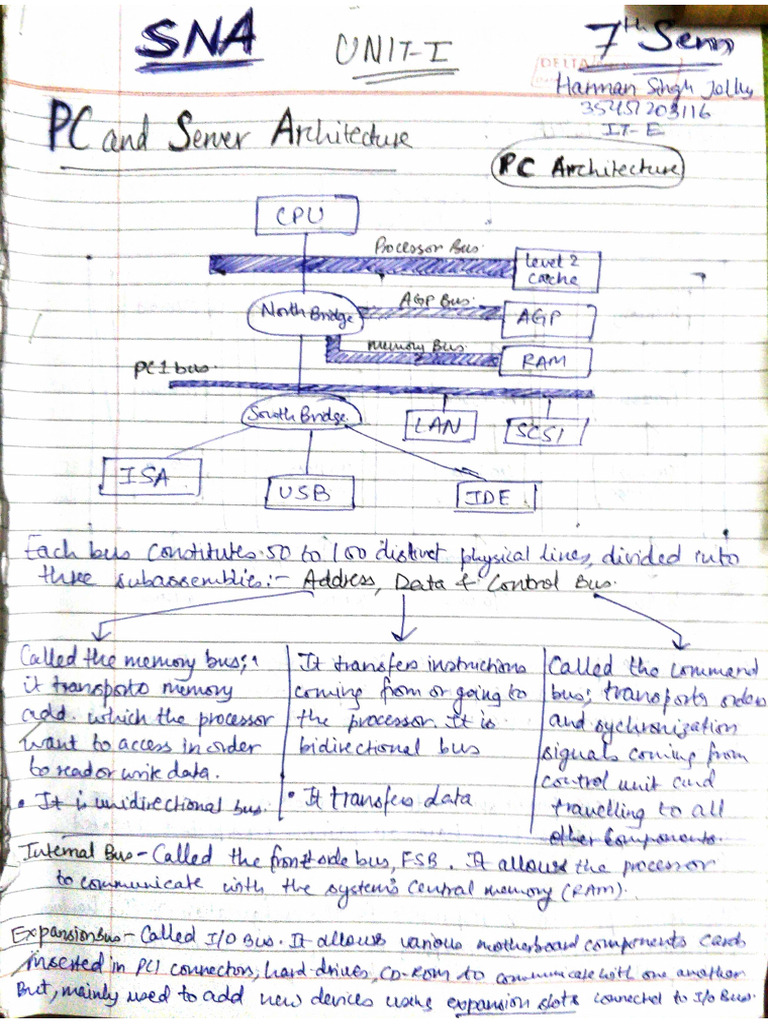 SNA UNIT-I 7th Sem
DELTA
Harman Singh Jolly
35451203116
IT-E
PC and Server Architecture
PC Architecture
CPU
Processor Bus
Level 2
Cache
North Bridge
AGP Bus
AGP
Memory Bus
RAM
PCI bus
South Bridge
LAN
SCSI
ISA
USB
IDE
Each bus constitutes 50 to 100 distinct physical lines, divided into
three subassemblies:- Address, Data & Control Bus.
Called the memory bus;
it transports memory
add. which the processor
want to access in order
to read or write data.
• It is unidirectional bus.
It transfers instructions
coming from or going to
the processor. It is
bidirectional bus
• It transfers data
Called the command
bus; transports orders
and sychronization
signals coming from
control unit and
travelling to all
other components.
Internal Bus - Called the front side bus, FSB. It allows the processor
to communicate with the system's central memory (RAM).
Expansion Bus - Called I/O Bus. It allows various motherboard components cards
inserted in PCI connectors, hard drives, CD-ROM to communicate with one another
But, mainly used to add new devices using expansion slots connected to I/o Bus.